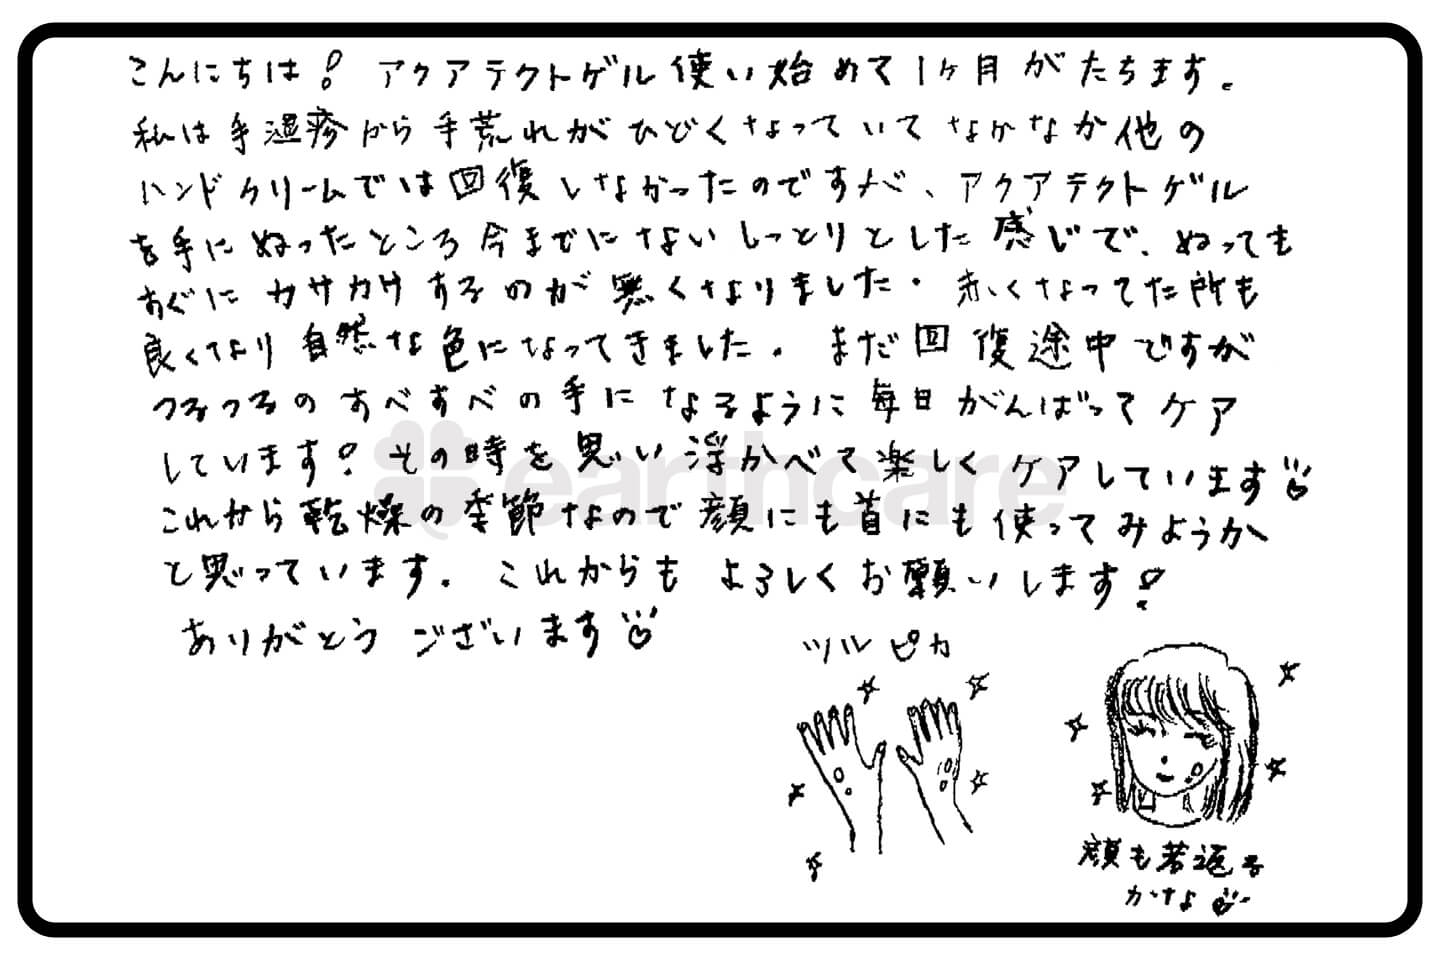 こんにちは! アクアテクトゲル使い始めて1ヶ月がたちます。
私は手湿疹から手荒れがひどくなっていてなかなか他の
ハンドクリームでは回復しなかったのですが、アクアテクトゲル
を手にぬったところ今までにないしっとりとした感じで、ぬっても
すぐにカサカサするのが無くなりました。赤くなってた所も
良くなり自然な色になってきました。まだ回復途中ですが
つるつるのすべすべの手になるように毎日がんばってケア
しています! その時を思い浮かべて楽しくケアしています
これから乾燥の季節なので顔にも首にも使ってみようか
と思っています。これからもよろしくお願いします!
ありがとうございます
ツルピカ
顔も若返る
かなぁ
earthcare